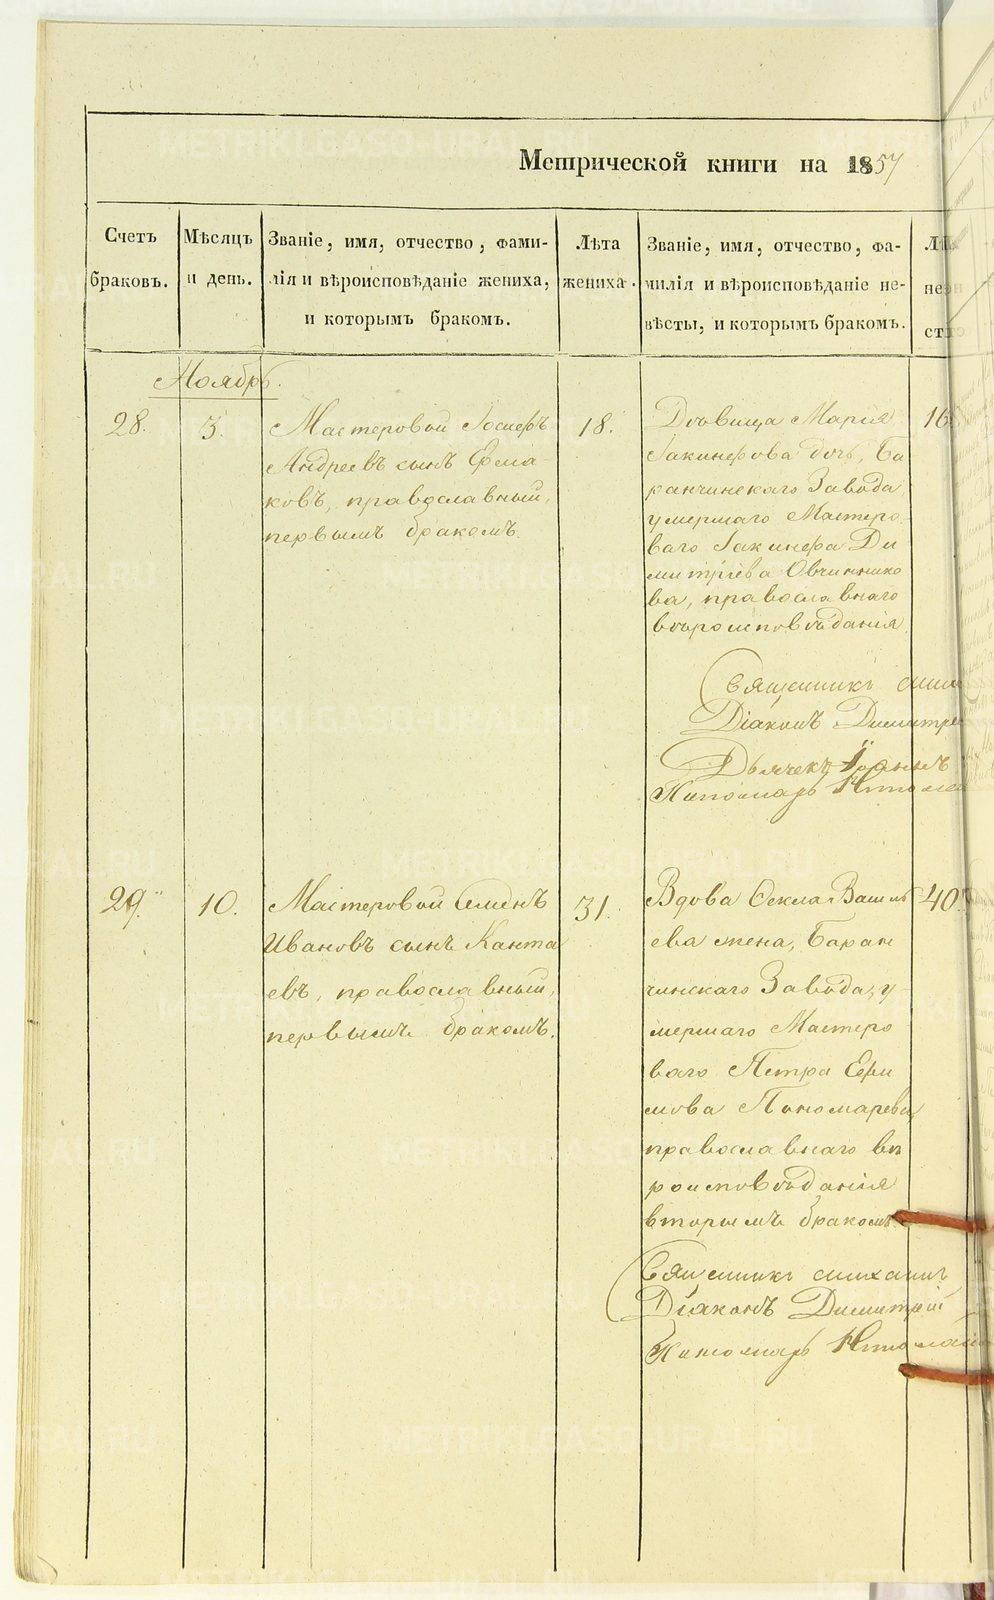 Метрической книги на 1857
Счетъ
браковъ.
Мѣсяцъ
и день.
Званіе, имя, отчество, фами-
лія и вѣроисповѣданіе жениха,
и которымъ бракомъ.
Лѣта
жениха.
Званіе, имя, отчество, фа-
милія и вѣроисповѣданіе не-
вѣсты, и которымъ бракомъ.
Ноябрь.
28.
3.
Мастеровой Іосифъ
Андреевъ сынъ Ерма-
ковъ, православный,
первымъ бракомъ.
18.
Дѣвица Марія
Іакинфова дочь, Ба
ранчинскаго Завода
умершаго Мастеро-
ваго Іакинфа Ди
митріева Овчиннико
ва, православнаго
вѣроисповѣданія
16.
Священникъ
Діаконъ Димитрі
Дьячекъ Іоаннъ
Пономарь
29.
10.
Мастеровой Семенъ
Ивановъ сынъ Канта
евъ, православный,
первымъ бракомъ.
31.
Вдова Ѳекла Василь
ева жена, Баран
чинскаго Завода, у-
мершаго Мастеро
ваго Петра Ефи
мова Пономарева,
православнаго вѣ
роисповѣданія
вторымъ бракомъ
40.
Священникъ
Діаконъ Димитрій
Пономарь
METRIKI.GASO-URAL.RU